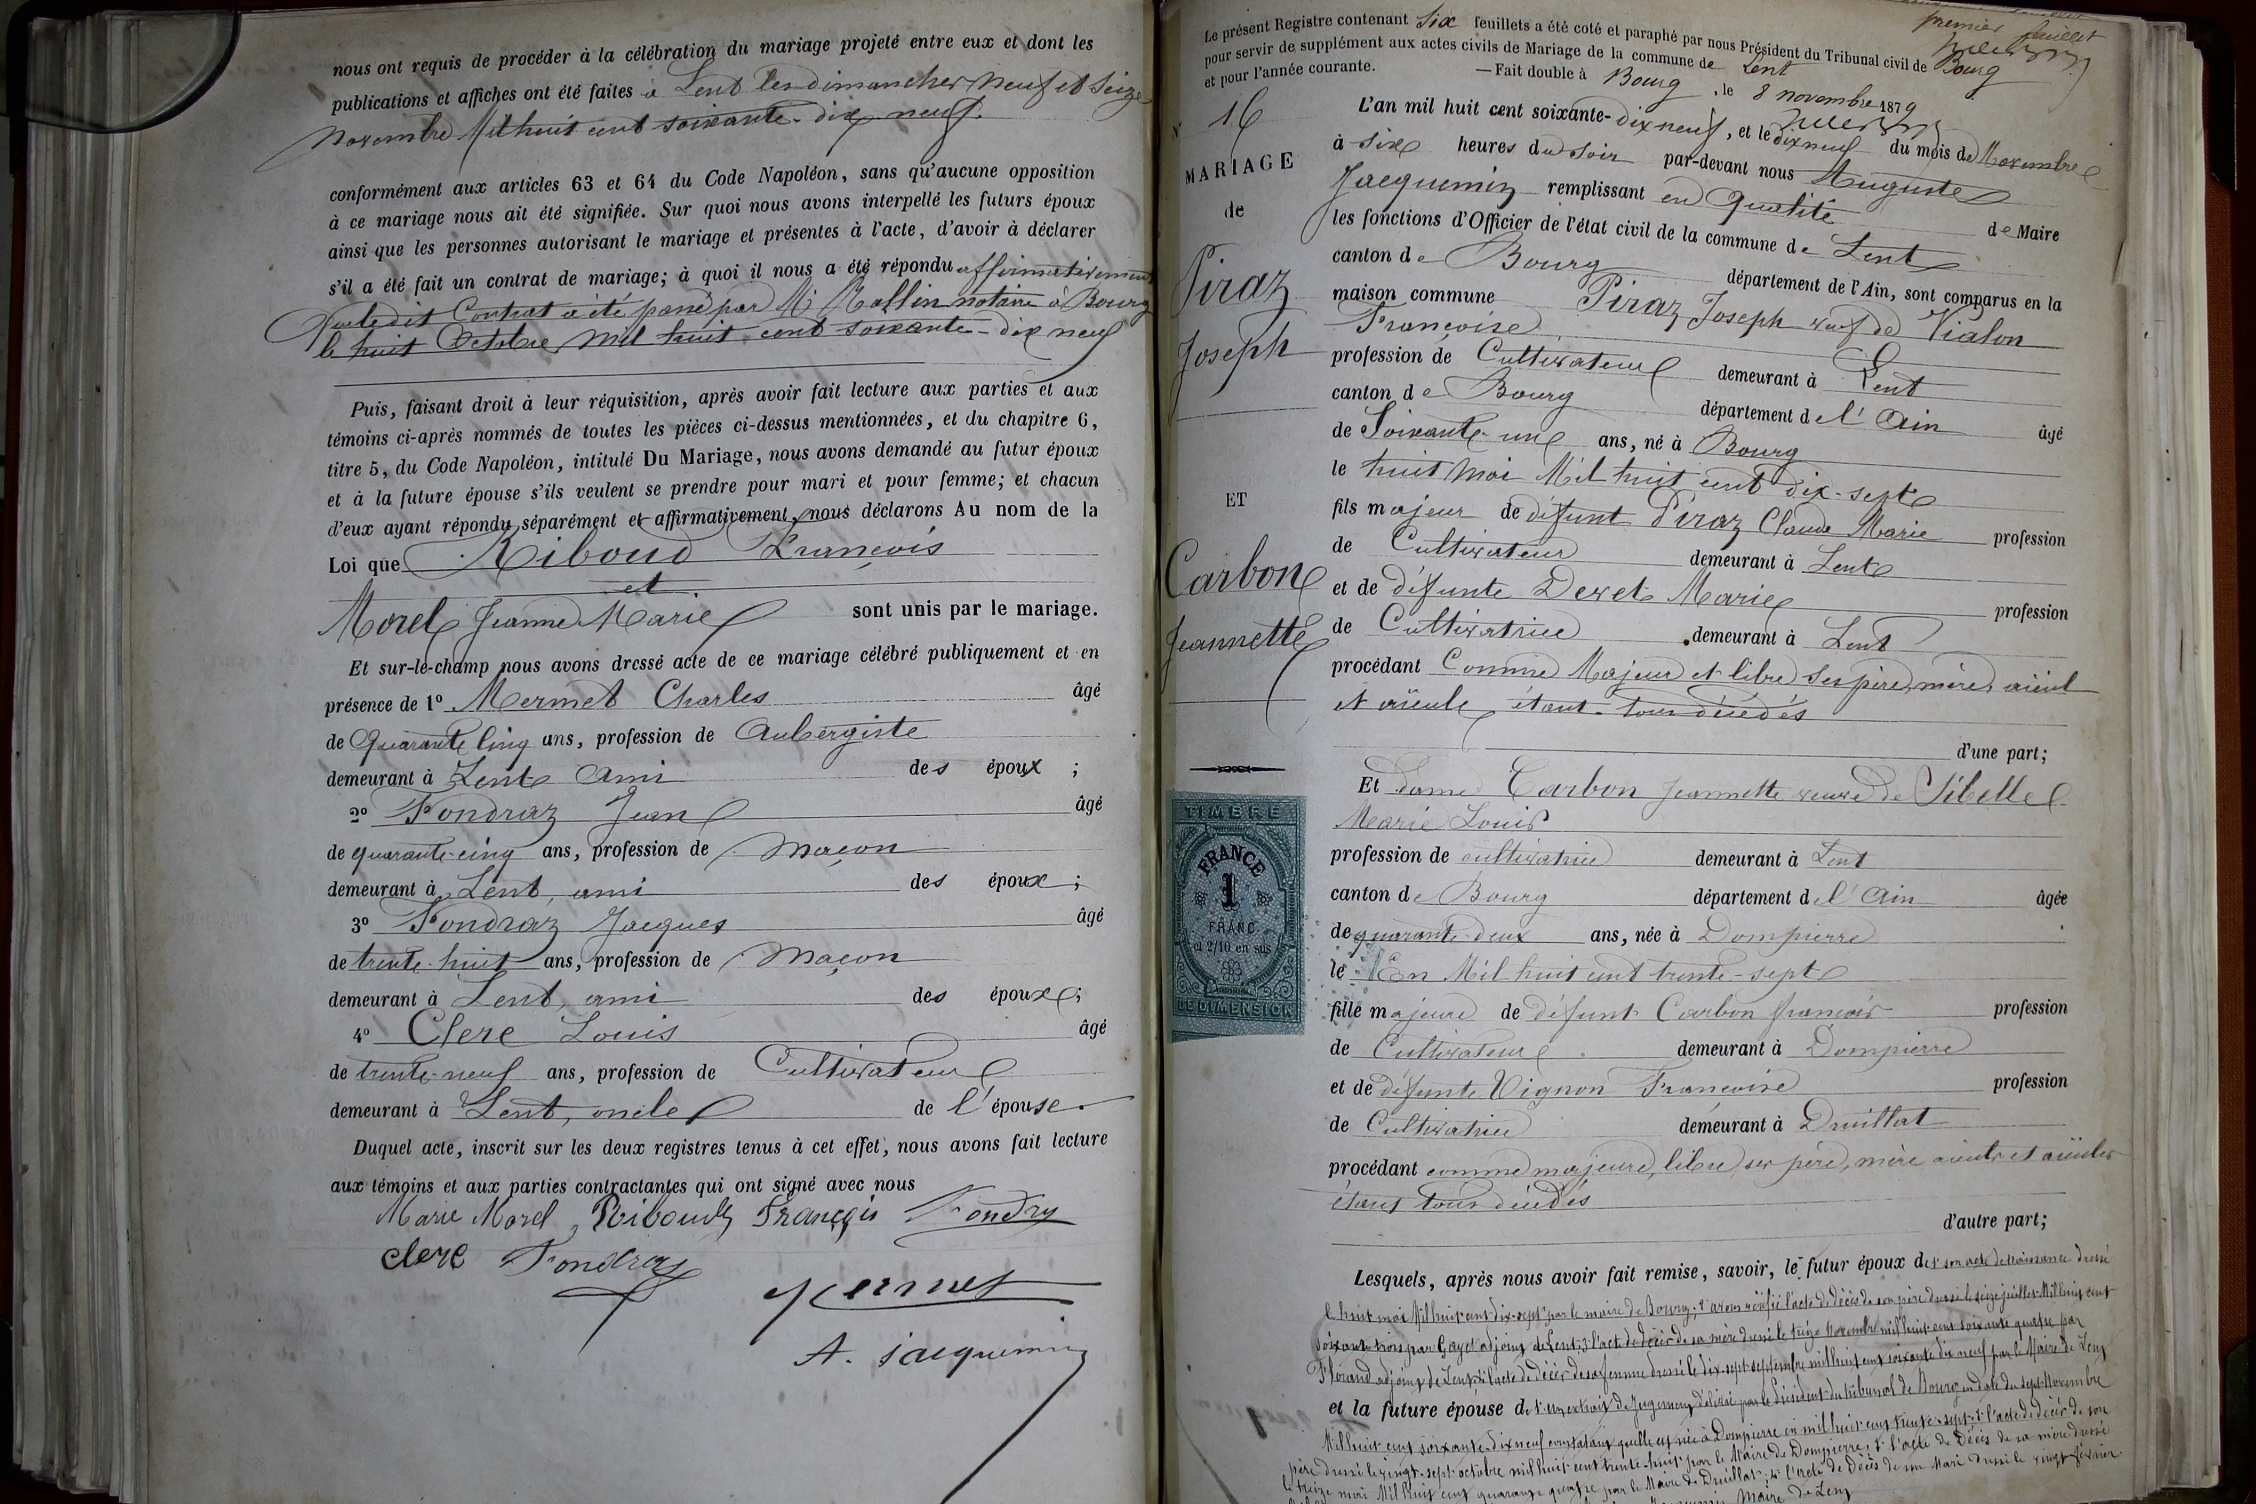 nous ont requis de procéder à la célébration du mariage projeté entre eux et dont les
publications et affiches ont été faites à Lent les dimanches neuf et seize
novembre Mil huit cent soixante-dix neuf.
conformément aux articles 63 et 64 du Code Napoléon, sans qu'aucune opposition
à ce mariage nous ait été signifiée. Sur quoi nous avons interpellé les futurs époux
ainsi que les personnes autorisant le mariage et présentes à l'acte, d'avoir à déclarer
s'il a été fait un contrat de mariage; à quoi il nous a été répondu affirmativement
que ledit Contrat a été passé par Me Rollin notaire à Bourg
le huit Octobre Mil huit cent soixante-dix neuf
Puis, faisant droit à leur réquisition, après avoir fait lecture aux parties et aux
témoins ci-après nommés de toutes les pièces ci-dessus mentionnées, et du chapitre 6,
titre 5, du Code Napoléon, intitulé Du Mariage, nous avons demandé au futur époux
et à la future épouse s'ils veulent se prendre pour mari et pour femme; et chacun
d'eux ayant répondu séparément et affirmativement, nous déclarons Au nom de la
Loi que Riboud François
et
Morel Jeanne Marie sont unis par le mariage.
Et sur-le-champ nous avons dressé acte de ce mariage célébré publiquement et en
présence de 1º Mermet Charles âgé
de Quarante cinq ans, profession de Aubergiste
demeurant à Lent Ami des époux ;
2º Fondraz Jean âgé
de quarante-cinq ans, profession de Maçon
demeurant à Lent, ami des époux ;
3º Fondraz Jacques âgé
de trente-huit ans, profession de Maçon
demeurant à Lent, ami des époux ;
4º Clerc Louis âgé
de trente-neuf ans, profession de Cultivateur
demeurant à Lent, oncle de l'épouse.
Duquel acte, inscrit sur les deux registres tenus à cet effet, nous avons fait lecture
aux témoins et aux parties contractantes qui ont signé avec nous
Marie Morel Riboud François Fondry
clerc Fondraz
Mermet
A. Jacquemin
premier feuillet
Le présent Registre contenant Six feuillets a été coté et paraphé par nous Président du Tribunal civil de Bourg
pour servir de supplément aux actes civils de Mariage de la commune de Lent
et pour l'année courante. — Fait double à Bourg, le 8 novembre 1879
Nº 16
MARIAGE
de
Piraz
Joseph
ET
Carbon
Jeannette
TIMBRE
FRANCE
1
FRANC
et 2/10 en sus
DE DIMENSION
L'an mil huit cent soixante-dix neuf, et le dix neuf du mois de Novembre
à six heures du soir par-devant nous Auguste
Jacquemin remplissant en qualité de Maire
les fonctions d'Officier de l'état civil de la commune de Lent
canton de Bourg département de l'Ain, sont comparus en la
maison commune Piraz Joseph veuf de Vialon
Françoise
profession de Cultivateur demeurant à Lent
canton de Bourg département de l'Ain âgé
de Soixante-un ans, né à Bourg
le huit Mai Mil huit cent dix-sept
fils majeur de défunt Piraz Claude Marie profession
de Cultivateur demeurant à Lent
et de défunte Devet Marie profession
de Cultivatrice demeurant à Lent
procédant Comme Majeur et libre ses père, mère, aïeul
et aïeule étant tous décédés
d'une part;
Et Dame Carbon Jeannette veuve de Sibelle
Marie Louis
profession de cultivatrice demeurant à Lent
canton de Bourg département de l'Ain âgée
de quarante-deux ans, née à Dompierre
le En Mil huit cent trente-sept
fille majeure de défunt Carbon françois profession
de Cultivateur demeurant à Dompierre
et de défunte Vignon Françoise profession
de Cultivatrice demeurant à Druillat
procédant comme majeure, libre ses père, mère aïeuls et aïeules
étant tous décédés
d'autre part;
Lesquels, après nous avoir fait remise, savoir, le futur époux de 1º son acte de naissance dressé
le huit mai Mil huit cent dix-sept par le maire de Bourg; 2º avons vérifié l'acte de décès de son père dressé le seize juillet Mil huit cent
soixante trois par Gayet adjoint de Lent; 3º l'acte de décès de sa mère dressé le treize Novembre mil huit cent soixante quatre par
Florand adjoint de Lent; 4º l'acte de décès de sa femme dressé le dix-sept septembre mil huit cent soixante dix neuf par le Maire de Lent
et la future épouse de 1º un extrait de Jugement délivré par le Président du tribunal de Bourg en date du sept Novembre
Mil huit cent soixante-dix neuf constatant qu'elle est née à Dompierre en mil huit cent trente-sept; 2º l'acte de décès de son
père dressé le vingt-sept octobre mil huit cent trente-huit par le Maire de Dompierre; 3º l'acte de décès de sa mère dressé
le treize mai Mil huit cent quarante quatre par le Maire de Druillat; 4º l'acte de décès de son Mari dressé le vingt février
Maire de Lent